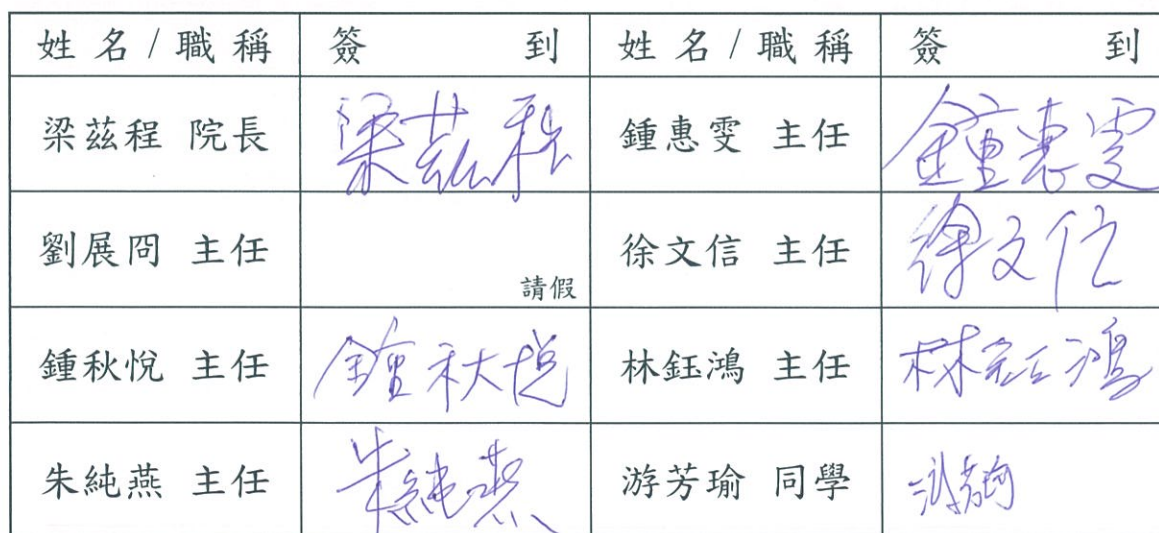 姓名/職稱 簽到 姓名/職稱 簽到
梁茲程 院長 梁茲程 鍾惠雯 主任 鍾惠雯
劉展冏 主任 請假 徐文信 主任 徐文信
鍾秋悅 主任 鍾秋悅 林鈺鴻 主任 林鈺鴻
朱純燕 主任 朱純燕 游芳瑜 同學 游芳瑜